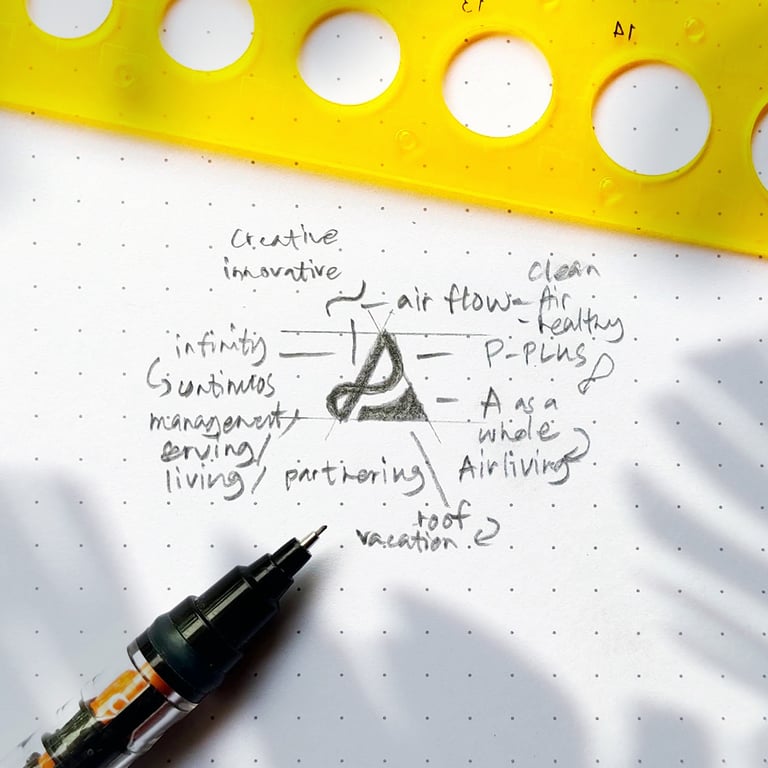 13
14
Creative
innovative
air flow - 
clean
Air
- healthy
infinity
P-PLUS
continuos
management/
serving/
living/
partnering
A as a
whole
Airliving
roof
vacation